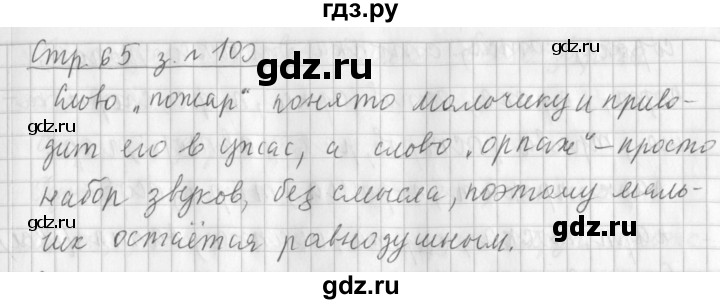 гдз.ру
Стр. 65 з. № 100
Слово „пожар“ понято мальчику и приво-
дит его в ужас, а слово „орпаж“ – просто
набор звуков, без смысла, поэтому маль-
чик остаётся равнодушным.
gdz.ru
gdz.ru
gdz.ru
gdz.ru
gdz.ru
gdz.ru
gdz.ru